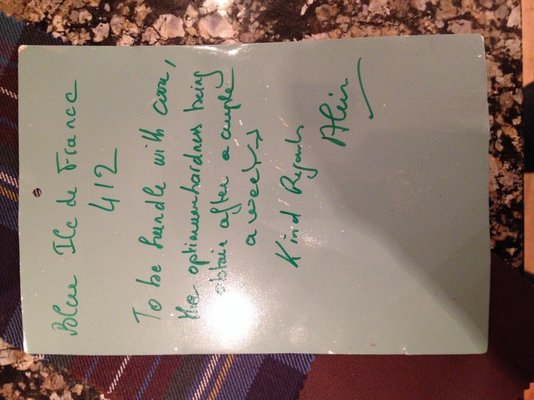 Bleu Ile de France
412
To be hundle with care,
the optimum hardness being
obtain after a couple
a week
Kind Regards
Alain